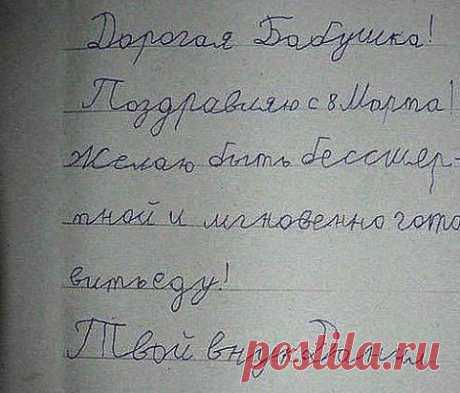 Дорогая Бабушка!
Поздравляю с 8 Марта!
Желаю быть бессмер-
тной и мгновенно гото
вить еду!
Твой внук Данил
postila.ru